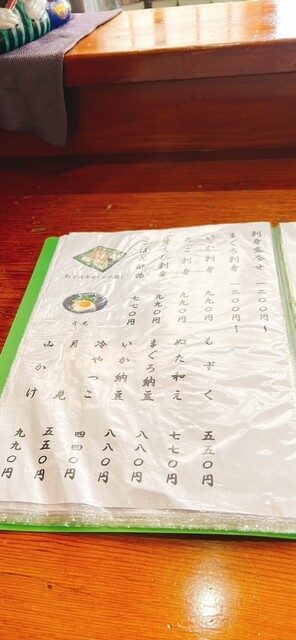 刺身盛合せ 一二〇〇円〜
まぐろ刺身 一二〇〇円〜
いか刺身 九九〇円
たこ刺身 九九〇円
刺身 九九〇円
酢物 七七〇円
もずく 五五〇円
ぬた和え 七七〇円
まぐろ納豆 八八〇円
いか納豆 八八〇円
冷やっこ 四四〇円
月見 五五〇円
山かけ 九九〇円
月見